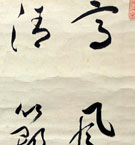 高風
清節